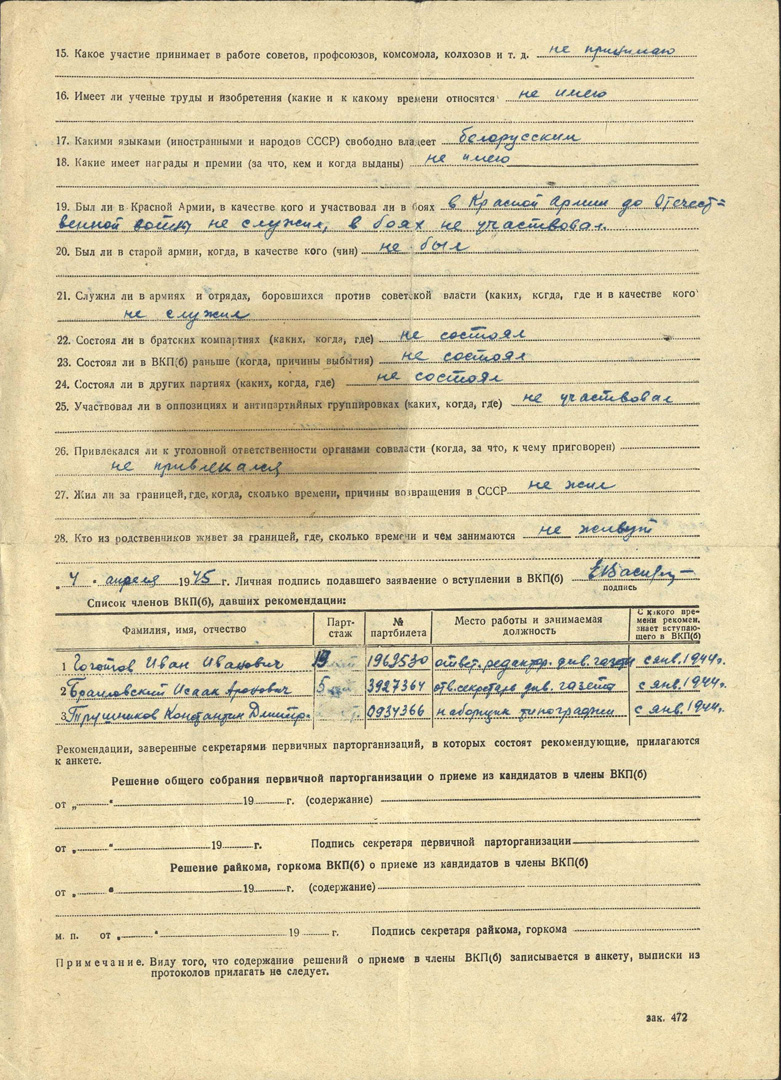 15. Какое участие принимает в работе советов, профсоюзов, комсомола, колхозов и т. д. не принимаю
16. Имеет ли ученые труды и изобретения (какие и к какому времени относятся не имею
17. Какими языками (иностранными и народов СССР) свободно владеет белорусским
18. Какие имеет награды и премии (за что, кем и когда выданы) не имею
19. Был ли в Красной Армии, в качестве кого и участвовал ли в боях в Красной Армии до Отечест=
венной войны не служил, в боях не участвовал.
20. Был ли в старой армии, когда, в качестве кого (чин) не был
21. Служил ли в армиях и отрядах, боровшихся против советской власти (каких, когда, где и в качестве кого
не служил
22. Состоял ли в братских компартиях (каких, когда, где) не состоял
23. Состоял ли в ВКП(б) раньше (когда, причины выбытия) не состоял
24. Состоял ли в других партиях (каких, когда, где) не состоял
25. Участвовал ли в оппозициях и антипартийных группировках (каких, когда, где) не участвовал
26. Привлекался ли к уголовной ответственности органами соввласти (когда, за что, к чему приговорен)
не привлекался
27. Жил ли за границей, где, когда, сколько времени, причины возвращения в СССР не жил
28. Кто из родственников живет за границей, где, сколько времени и чем занимаются не живут
„ 4 " апреля 1945 г. Личная подпись подавшего заявление о вступлении в ВКП(б)
подпись
Список членов ВКП(б), давших рекомендации:
Фамилия, имя, отчество Парт-стаж № партбилета Место работы и занимаемая должность С какого времени рекомен. знает вступающего в ВКП(б)
1 Иван Иванович 1969530 ответ. редактор див. газеты с янв. 1944 г.
2 Браиловский Исаак Аронович 5 3927364 отв. секретарь див. газета с янв. 1944 г.
3 Трушников Константин Дмитр. 0934366 наборщик типографии с янв. 1944 г.
Рекомендации, заверенные секретарями первичных парторганизаций, в которых состоят рекомендующие, прилагаются
к анкете.
Решение общего собрания первичной парторганизации о приеме из кандидатов в члены ВКП(б)
от „ " 19 г. (содержание)
от „ " 19 г. Подпись секретаря первичной парторганизации
Решение райкома, горкома ВКП(б) о приеме из кандидатов в члены ВКП(б)
от „ " 19 г. (содержание)
м. п. от „ " 19 г. Подпись секретаря райкома, горкома
Примечание. Виду того, что содержание решений о приеме в члены ВКП(б) записывается в анкету, выписки из
протоколов прилагать не следует.
зак. 472